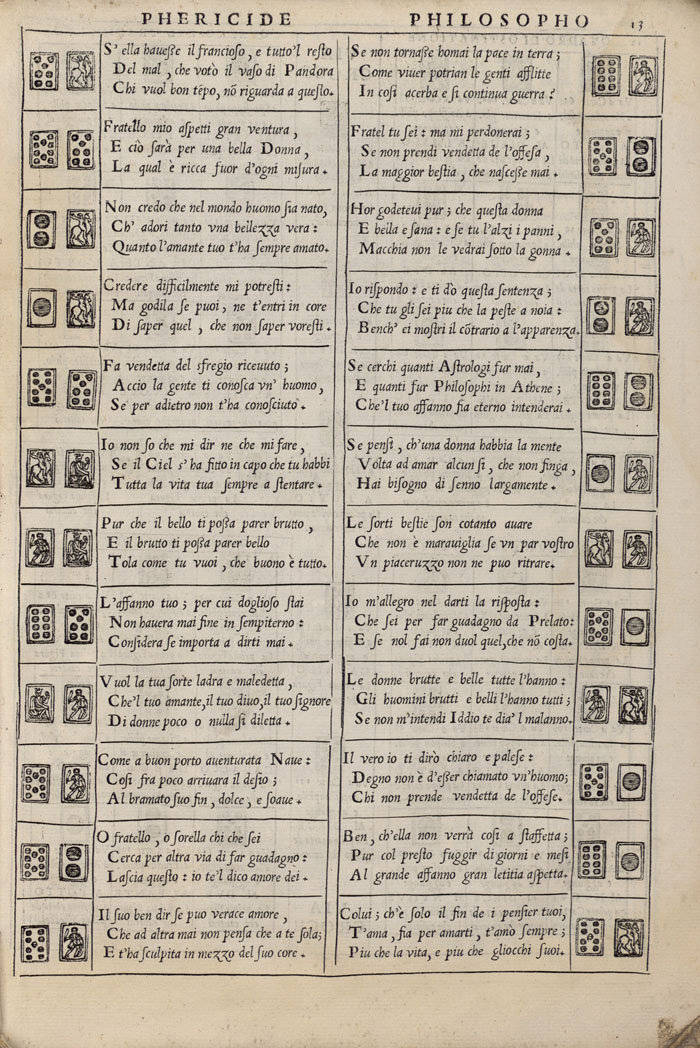 PHERICIDE PHILOSOPHO 13
S' ella hauesse il francioso, e tutto'l resto
Del mal, che votò il vaso di Pandora
Chi vuol bon tẽpo, nõ riguarda a questo.
Fratello mio aspetti gran ventura,
E ciò sarà per una bella Donna,
La qual è ricca fuor d'ogni misura.
Non credo che nel mondo huomo sia nato,
Ch' adori tanto vna bellezza vera:
Quanto l'amante tuo t'ha sempre amato.
Credere difficilmente mi potresti:
Ma godila se puoi, ne t'entri in core
Di saper quel, che non saper voresti.
Fa vendetta del sfregio riceuuto;
Accio la gente ti conosca vn' huomo,
Se per adietro non t'ha conosciuto.
Io non so che mi dir ne che mi fare,
Se il Ciel s' ha fitto in capo che tu habbi
Tutta la vita tua sempre a stentare.
Pur che il bello ti possa parer brutto,
E il brutto ti possa parer bello
Tola come tu vuoi, che buono è tutto.
L'affanno tuo; per cui doglioso stai
Non hauera mai fine in sempiterno:
Considera se importa a dirti mai.
Vuol la tua sorte ladra e maledetta,
Che'l tuo amante, il tuo diuo, il tuo signore
Di donne poco o nulla si diletta.
Come a buon porto auenturata Naue:
Cosi fra poco arriuara il desio;
Al bramato suo fin, dolce, e soaue.
O fratello, o sorella chi che sei
Cerca per altra via di far guadagno:
Lascia questo: io te'l dico amore dei.
Il suo ben dir se puo verace amore,
Che ad altra mai non pensa che a te sola;
E t'ha sculpita in mezzo del suo core.
Se non tornasse homai la pace in terra;
Come viuer potrian le genti afflitte
In cosi acerba e si continua guerra?
Fratel tu sei: ma mi perdonerai;
Se non prendi vendetta de l'offesa,
La maggior bestia, che nascesse mai.
Hor godeteui pur; che questa donna
E bella e sana: e se tu l'alzi i panni,
Macchia non le vedrai sotto la gonna.
Io rispondo: e ti dò questa sentenza;
Che tu gli sei piu che la peste a noia:
Bench' ei mostri il cõtrario a l'apparenza.
Se cerchi quanti Astrologi fur mai,
E quanti fur Philosophi in Athene;
Che'l tuo affanno fia eterno intenderai.
Se pensi, ch'una donna habbia la mente
Volta ad amar alcun si, che non finga,
Hai bisogno di senno largamente.
Le sorti bestie son cotanto auare
Che non è marauiglia se vn par vostro
Vn piaceruzzo non ne puo ritrare.
Io m'allegro nel darti la risposta:
Che sei per far guadagno da Prelato:
E se nol fai non duol quel, che nõ costa.
Le donne brutte e belle tutte l'hanno:
Gli huomini brutti e belli l'hanno tutti;
Se non m'intendi Iddio te dia'l malanno.
Il vero io ti dirò chiaro e palese:
Degno non è d'esser chiamato vn'huomo;
Chi non prende vendetta de l'offese.
Ben, ch'ella non verrà cosi a staffetta;
Pur col presto fuggir di giorni e mesi
Al grande affanno gran letitia aspetta.
Colui; ch'è solo il fin de i pensier tuoi,
T'ama, fia per amarti, t'amò sempre;
Piu che la vita, e piu che gliocchi suoi.